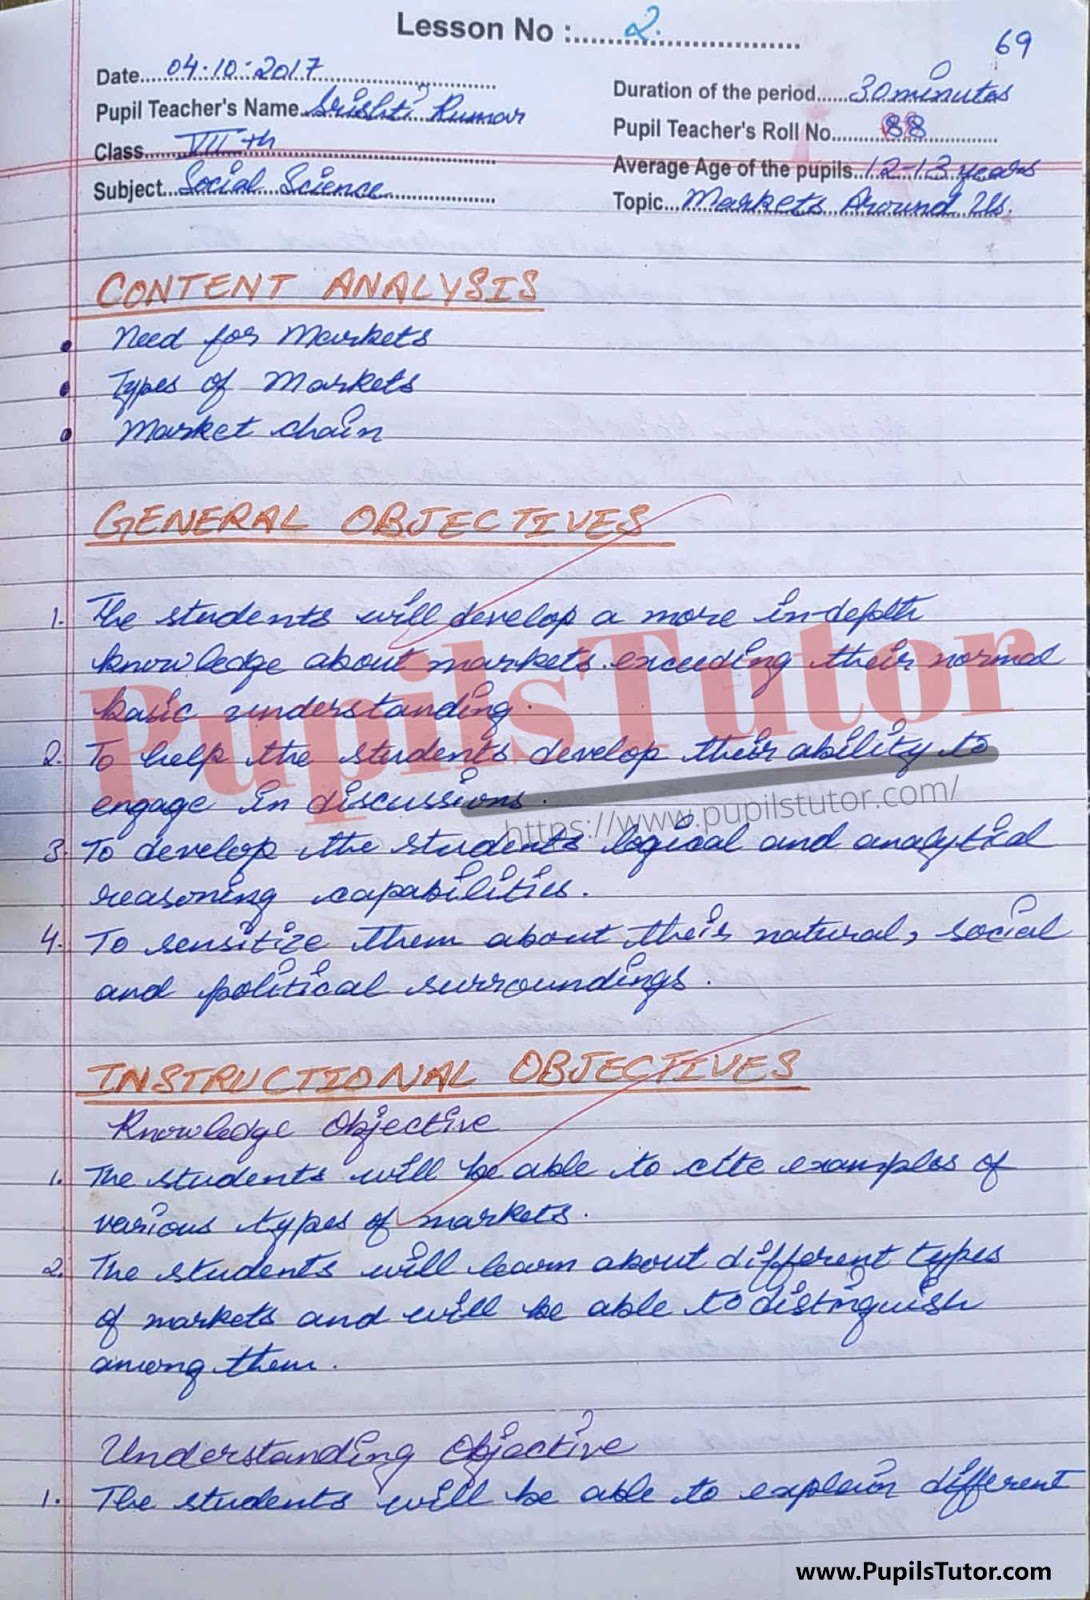 Lesson No :.....2.....
69
Date...04.10.2017
Duration of the period...30 minutes
Pupil Teacher's Name...Srishti Kumar
Pupil Teacher's Roll No...88
Class...VIIth
Average Age of the pupils...12-13 years
Subject...Social Science
Topic...Markets Around Us.
CONTENT ANALYSIS
• Need for Markets
• Types of Markets
• Market chain
GENERAL OBJECTIVES
1. The students will develop a more in-depth
knowledge about markets exceeding their normal
basic understanding.
2. To help the students develop their ability to
engage in discussions.
3. To develop the students logical and analytical
reasoning capabilities.
4. To sensitize them about their natural, social
and political surroundings.
INSTRUCTIONAL OBJECTIVES
Knowledge Objective
1. The students will be able to cite examples of
various types of markets.
2. The students will learn about different types
of markets and will be able to distinguish
among them.
Understanding Objective
1. The students will be able to explain different
PupilsTutor
https://www.pupilstutor.com/
www.PupilsTutor.com